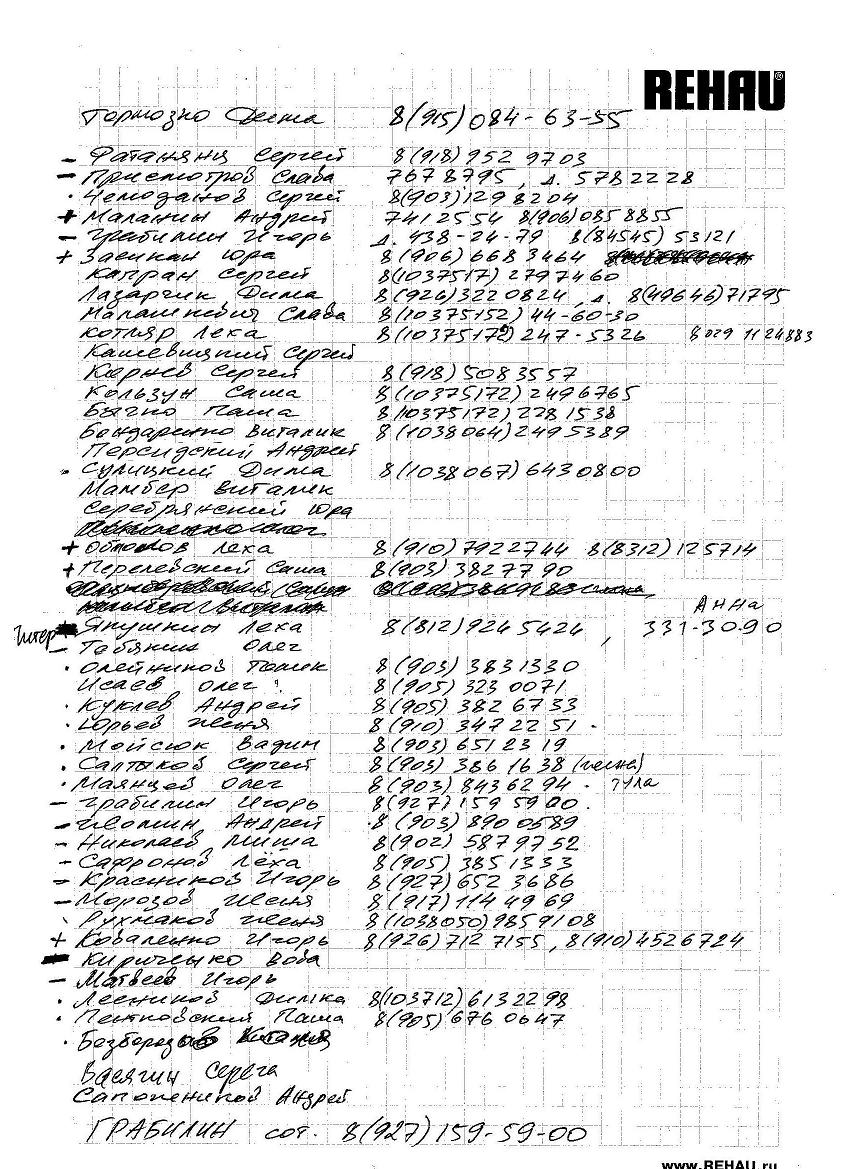 REHAU®
Тормозко Дима 8(915)084-63-55
- Фатаняни Сергей 8(918)952 9703
- Присмотров Слава 7678795, д. 5782228
· Чемоданов Сергей 8(903)1298204
+ Маланин Андрей 7412554 8(906)0858855
- Грабилин Игорь д. 438-24-79 8(84545)53121
+ Заенкан Юра 8(906)6683464
Капран Сергей 8(1037517)2797460
Лазарчик Дима 8(926)3220824, д. 8(49646)71795
Малашкевич Слава 8(10375152)44-60-30
Котляр Леха 8(10375172)247-5326 8 029 1124883
Кашевицкий Сергей
Карнев Сергей 8(918)5083557
Кользун Саша 8(10375172)2496765
Бычко Паша 8(10375172)2281538
Бондаренко Виталик 8(1038064)2495389
Персидский Андрей
· Сулицкий Дима 8(1038067)6430800
Мамбер Виталик
Серебрянский Юра
+ Обломов Леха 8(910)7922744 8(8312)125714
+ Перелевский Саша 8(903)3827790
Анна
Питер Япушкин Леха 8(812)9245424, 331-30-90
- Тебякин Олег
· Олейников Толик 8(903)3831330
Исаев Олег 8(905)3230071
· Куклев Андрей 8(905)3826733
· Юрьев Женя 8(910)3472251 ·
· Мойсюк Вадим 8(903)6512319
· Салтыков Сергей 8(903)3861638
· Маянцев Олег 8(903)8436294 · Тула
- Грабилин Игорь 8(927)1595900.
- Андрей 8(903)8900589
- Николаев Миша 8(902)5879752
- Сафронов Лёха 8(905)3851333
- Красников Игорь 8(927)6523686
- Морозов Женя 8(917)1144969
Рухмаков Женя 8(1038050)9859108
+ Коваленко Игорь 8(926)7127155, 8(910)4526724
- Кириченко Вова
- Матвеев Игорь
· Лесников Димка 8(103712)6132298
· Пентковский Паша 8(905)6760647
· Безбородов Виталий
Васягин Серега
Сапожников Андрей
ГРАБИЛИН сот. 8(927)159-59-00
www.REHAU.ru